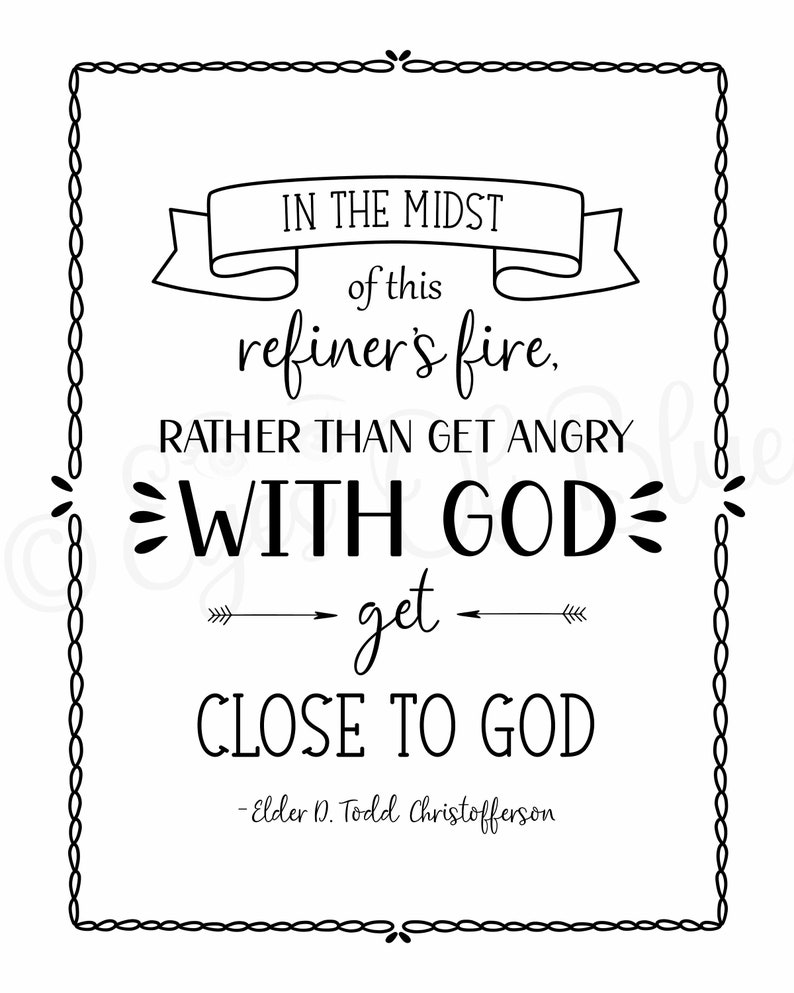 IN THE MIDST
of this
refiner's fire,
RATHER THAN GET ANGRY
WITH GOD
get
CLOSE TO GOD
-Elder D. Todd Christofferson
© Eyes Of Blue